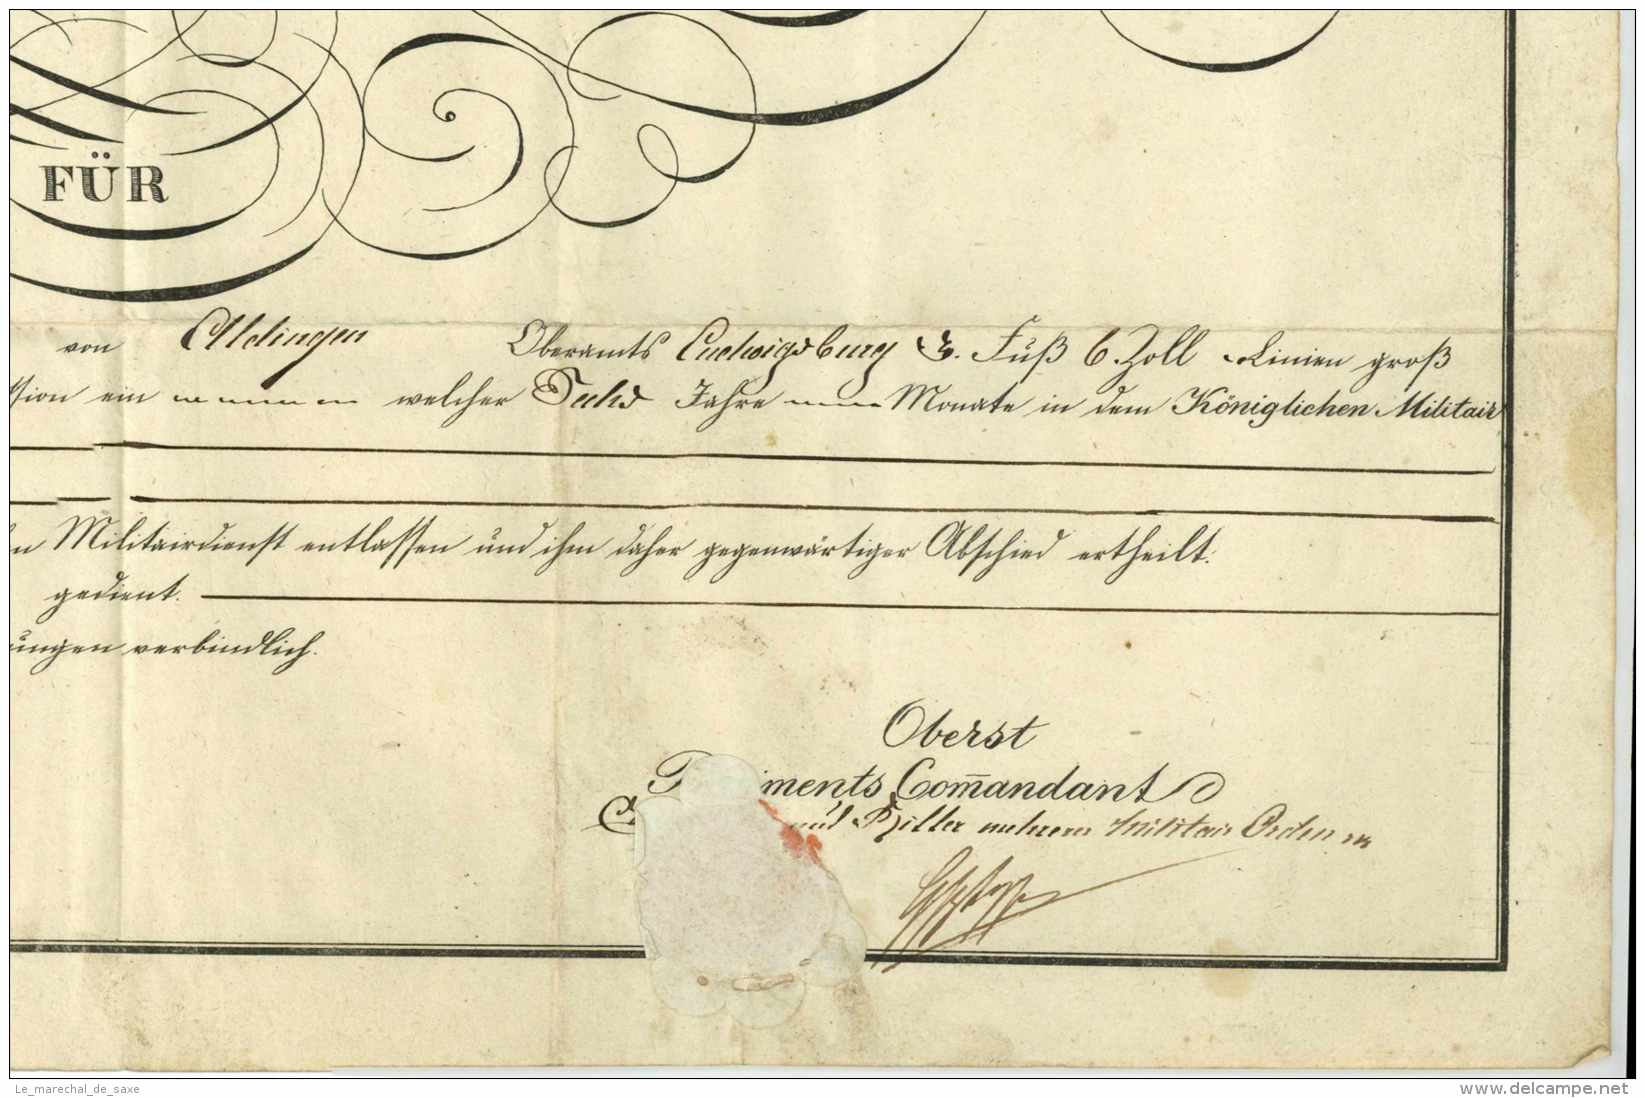 FÜR
von Aldingen Oberamts Ludwigsburg 5. Fuß 6. Zoll Linien groß
ssion ein welcher Sechs Jahre Monate in dem Königlichen Militair
n Militairdienst entlassen und ihm daher gegenwärtiger Abschied ertheilt.
gedient.
ungen verbindlich.
Oberst
ments Com̄andant
und Ritter mehrerer Militair Orden
Le_marechal_de_saxe
www.delcampe.net